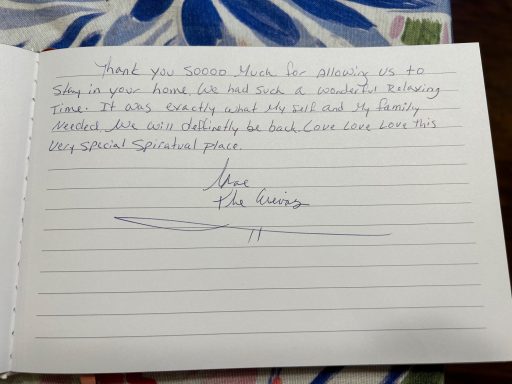 Thank you soooo Much for Allowing us to
Stay in your home. We had such a wonderful Relaxing
Time. It was exactly what My self and My family
Needed. We will deffinetly be back. Love Love Love this
Very special Spiratual place.
The